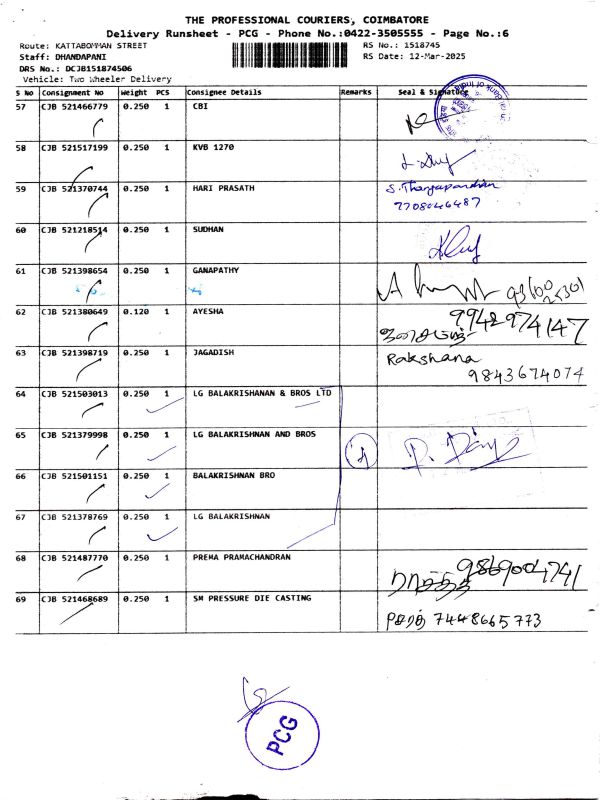 THE PROFESSIONAL COURIERS, COIMBATORE
Delivery Runsheet - PCG - Phone No.:0422-3505555 - Page No.:6
Route: KATTABOMMAN STREET
RS No.: 1518745
Staff: DHANDAPANI
RS Date: 12-Mar-2025
DRS No.: DCJB151874506
Vehicle: Two Wheeler Delivery
S No Consignment No Weight PCS Consignee Details Remarks Seal & Signature
57 CJB 521466779 0.250 1 CBI
58 CJB 521517199 0.250 1 KVB 1270
59 CJB 521370744 0.250 1 HARI PRASATH S. Thangapandian
7708046487
60 CJB 521218514 0.250 1 SUDHAN
61 CJB 521398654 0.250 1 GANAPATHY
62 CJB 521380649 0.120 1 AYESHA 9942974147
63 CJB 521398719 0.250 1 JAGADISH Rakshana
9843674074
64 CJB 521503013 0.250 1 LG BALAKRISHANAN & BROS LTD
65 CJB 521379998 0.250 1 LG BALAKRISHNAN AND BROS
66 CJB 521501151 0.250 1 BALAKRISHNAN BRO
67 CJB 521378769 0.250 1 LG BALAKRISHNAN
68 CJB 521487770 0.250 1 PREMA PRAMACHANDRAN 9869004741
69 CJB 521468689 0.250 1 SM PRESSURE DIE CASTING 7448665773
PCG